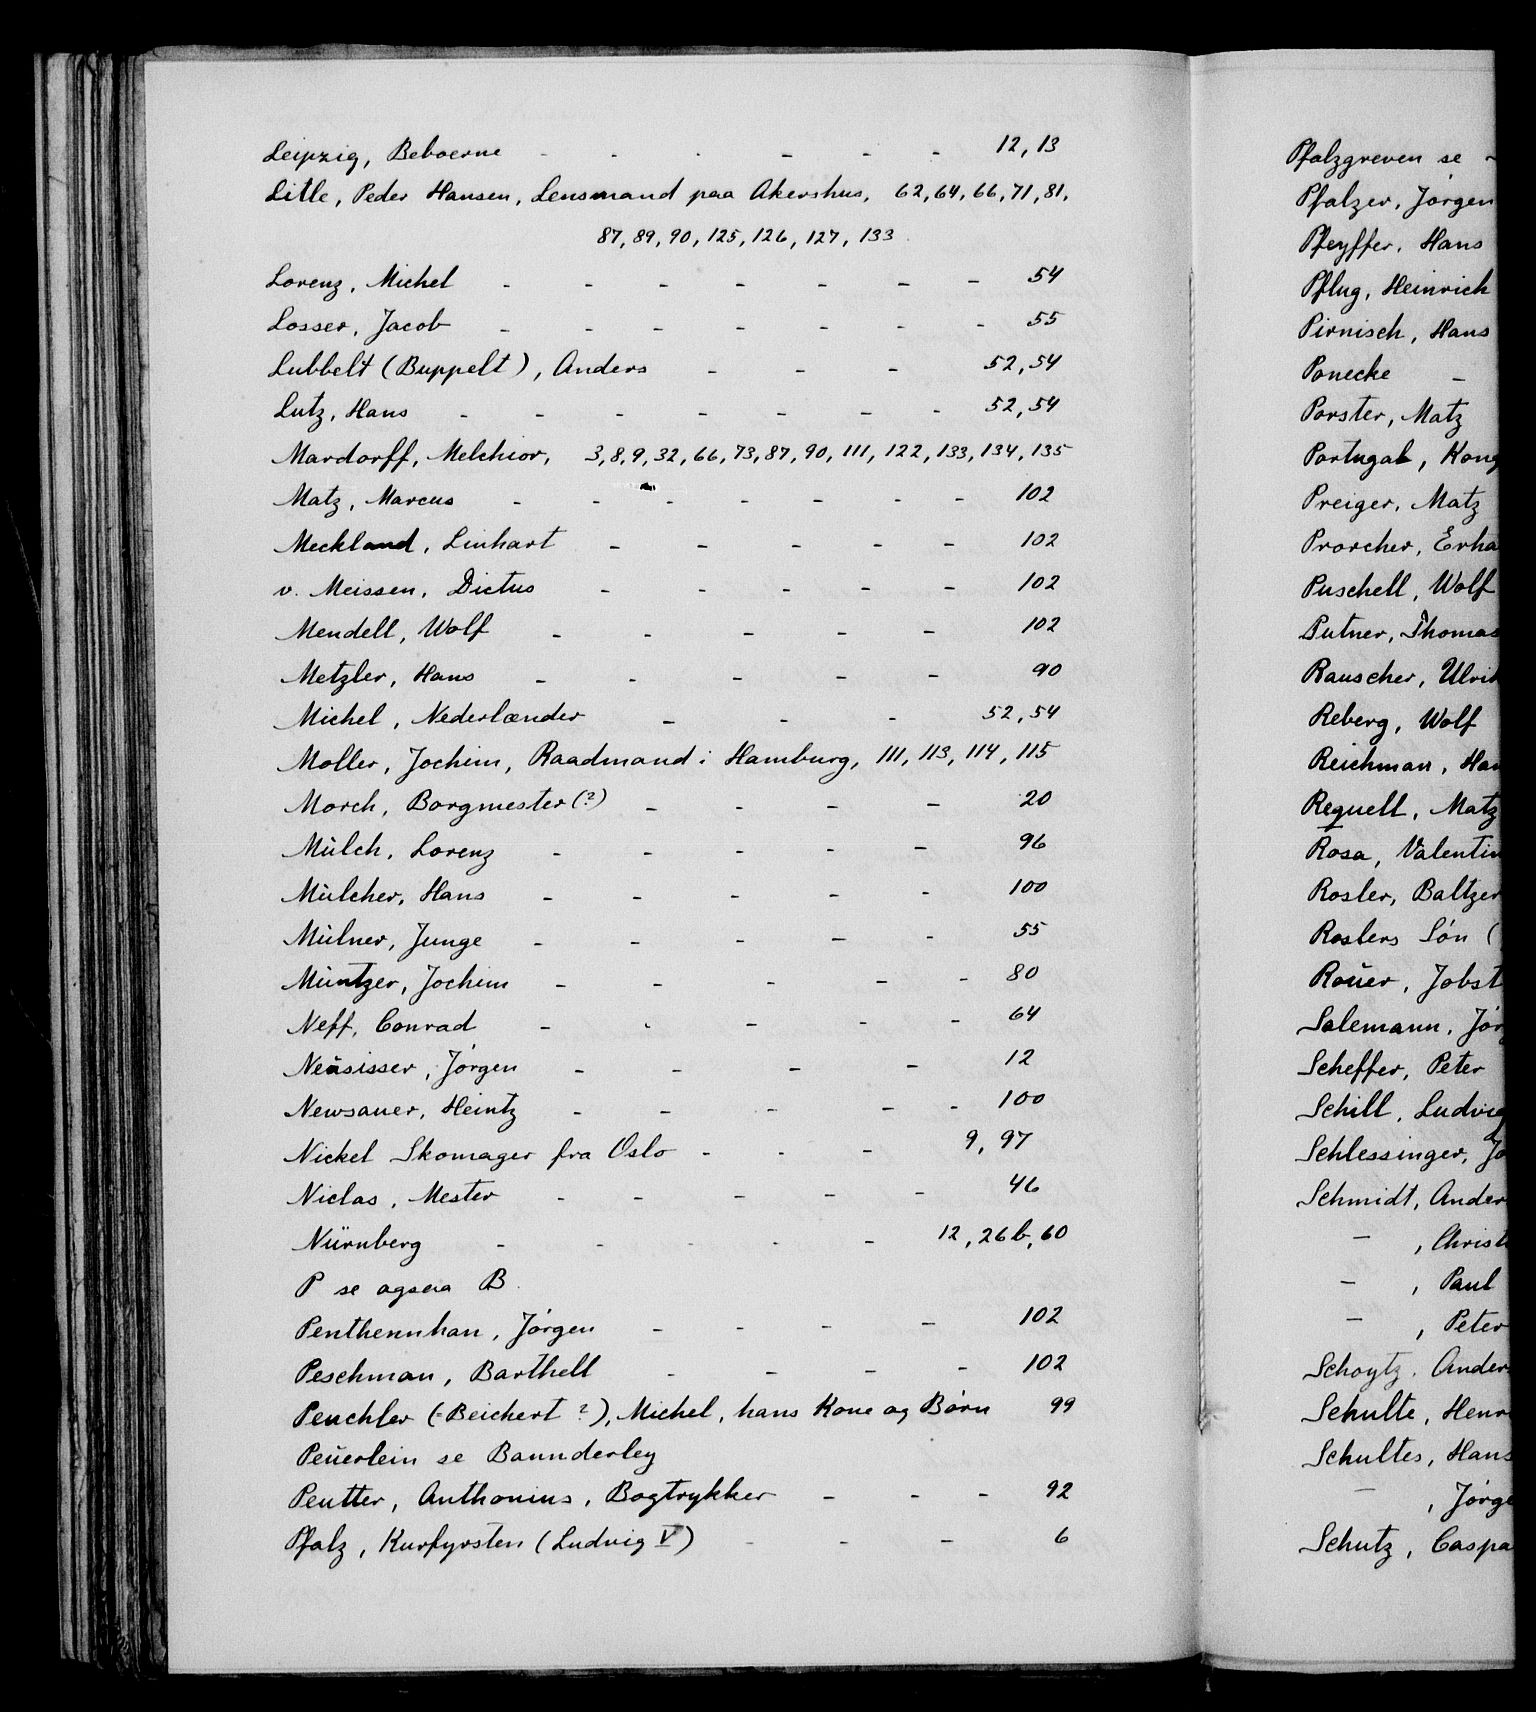 Leipzig, Beboerne - - - - - - 12, 13
Litle, Peder Hansen, Lensmand paa Akershus, 62, 64, 66, 71, 81,
87, 89, 90, 125, 126, 127, 133
Lorenz, Michel - - - - - - - 54
Losser, Jacob - - - - - - - 55
Lubbelt (Buppelt), Anders - - - 52, 54
Lutz, Hans - - - - - - - 52, 54
Mardorff, Melchior, 3, 8, 9, 32, 66, 73, 87, 90, 111, 122, 133, 134, 135
Matz, Marcus - - - - - - - 102
Meckland, Linhart - - - - - 102
v. Meissen, Dictus - - - - - 102
Mendell, Wolf - - - - - 102
Metzler, Hans - - - - - 90
Michel, Nederlænder - - - 52, 54
Moller, Jochim, Raadmand i Hamburg, 111, 113, 114, 115
Morch, Borgmester (?) - - - - 20
Mülch, Lorenz - - - - - 96
Mülcher, Hans - - - - - 100
Mülner, Junge - - - - - 55
Müntzer, Jochim - - - - - 80
Neff, Conrad - - - - - 64
Neüsisser, Jörgen - - - - 12
Newsauer, Heintz - - - - - 100
Nickel Skomager fra Oslo - - - 9, 97
Niclas, Mester - - - - - 46
Nürnberg - - - - - 12, 26b, 60
P se ogsaa B
Penthennhan, Jörgen - - - - 102
Peschman, Barthell - - - - 102
Peuchler (= Beichert ?), Michel, hans Kone og Börn 99
Peüerlein se Baunderley
Peutter, Anthonius, Bogtrykker - - - 92
Pfalz, Kurfyrsten (Ludvig V) - - - 6
Pfalzgreven se -
Pfalzer, Jörgen
Pfeyffer, Hans
Pflug, Heinrich
Pirnisch, Hans
Ponecke -
Porster, Matz
Portugal, Kong
Preiger, Matz
Prorcher, Erha
Puschell, Wolf
Putner, Thomas
Rauscher, Ulrik
Reberg, Wolf
Reichman, Han
Requell, Matz
Rosa, Valentin
Rosler, Baltzer
Roslers Sön (
Roüer, Jobst
Salemann, Jör
Scheffer, Peter
Schill, Ludvig
Schlessinger, Jo
Schmidt, Ander
- , Christ
- , Paul
- , Peter
Schoytz, Ander
Schulte, Henr
Schultes, Hans
- , Jörge
Schutz, Caspa